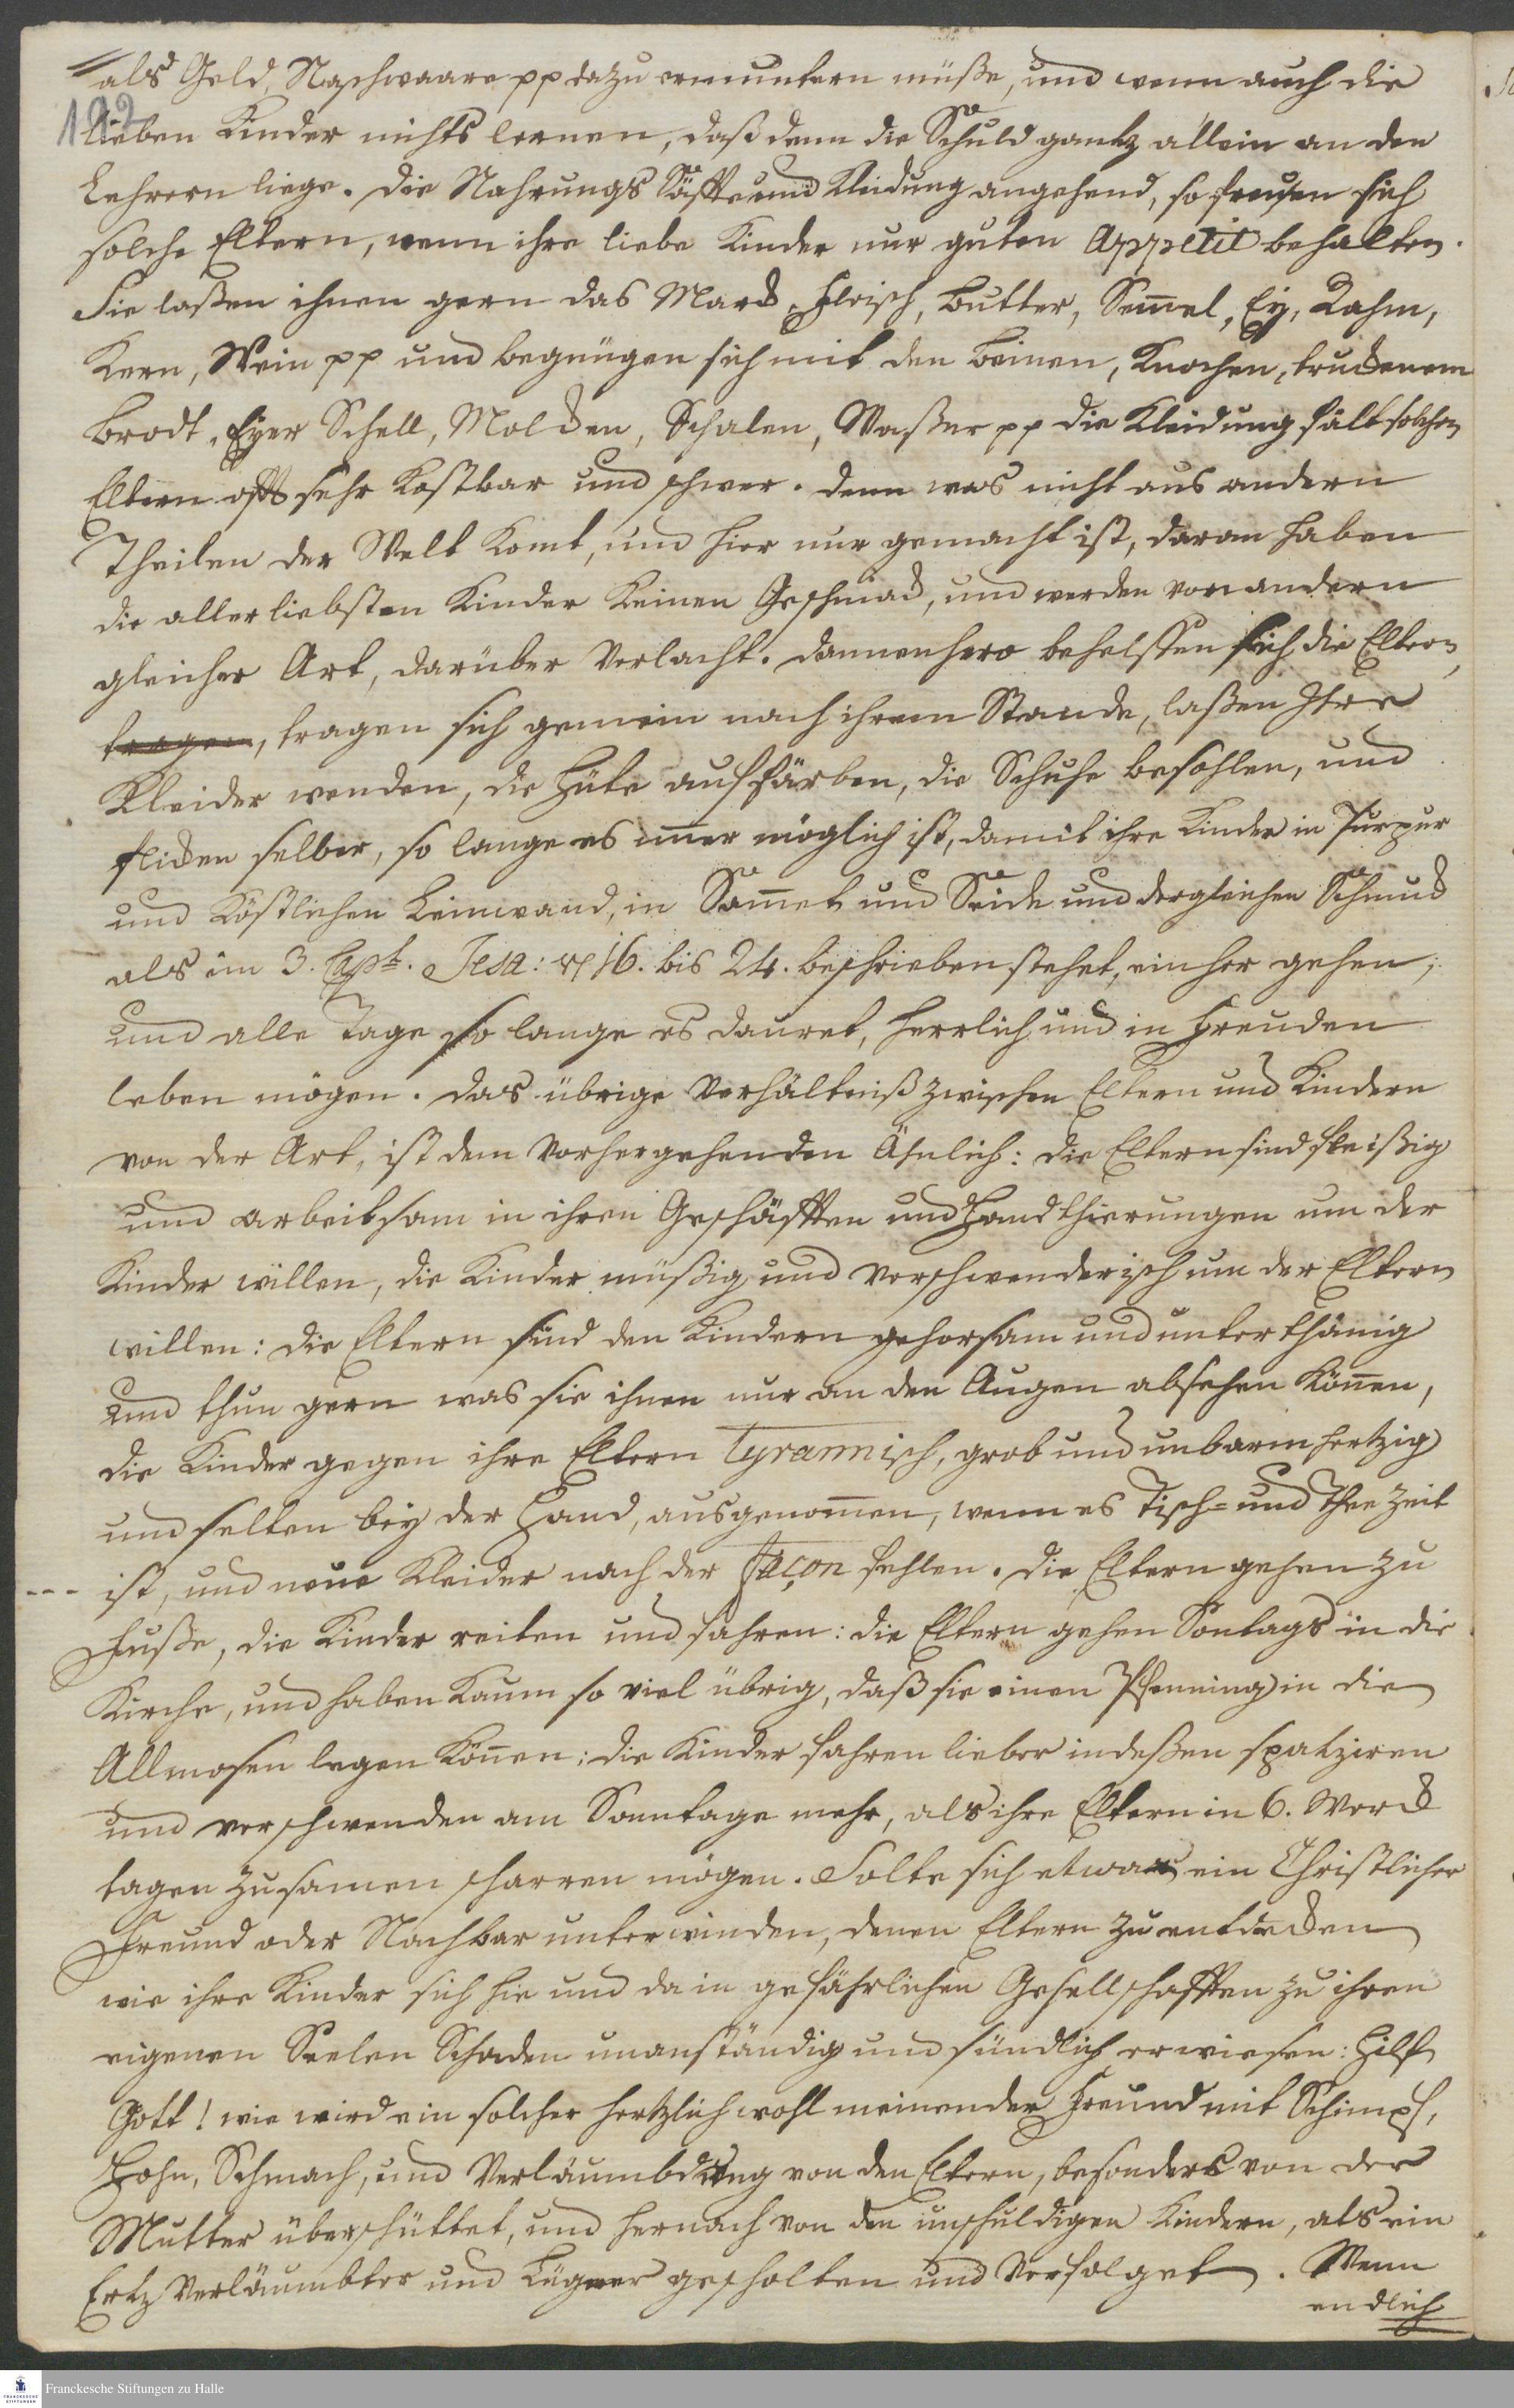 als Geld, Naschwaare pp dazu ermuntern müße, und wenn auch die
192
lieben Kinder nichts lernen, daß denn die Schuld gantz allein an den
Lehrern liege. Die Nahrungs Säffte und Kleidung angehend, so freuen sich
solche Eltern, wenn ihre liebe Kinder nur guten Appetit behalten.
Sie laßen ihnen gern das Marck, Fleisch, Butter, Sem̅el, Ey, Rahm,
Kern, Wein pp und begnügen sich mit den Beinen, Knochen, truckenem
Brodt, Eyer Schell, Molcken, Schalen, Waßer pp die Kleidung fält solchen
Eltern offt sehr Kostbar und schwer. Denn was nicht aus andern
Theilen der Welt Komt, und hier nur gemacht ist, daran haben
die aller liebsten Kinder Keinen Geschmack, und werden von andern
gleicher Art, darüber Verlacht. Dannenhero behelffen sich die Eltern,
tragen, tragen sich gemein nach ihrem Stande, laßen Ihre
Kleider wenden, die Hüte auffärben, die Schuhe besohlen, und
flicken selber, so lange es im̅er möglich ist, damit ihre Kinder in Purpur
und Köstlichen Leinwand, in Sam̅et und Seide und dergleichen Schmuck
als im 3. Capt. Jesa: vs 16. bis 24. beschrieben stehet, einher gehen,
und alle Tage so lange es dauret, herrlich und in Freuden
leben mögen. Das übrige Verhältniß zwischen Eltern und Kindern
von der Art, ist dem Vorhergehenden Ähnlich: die Eltern sind fleißig
und arbeitsam in ihren Geschäfften und Handthierungen um der
Kinder willen, die Kinder müßig und verschwenderisch um der Eltern
willen: die Eltern sind den Kindern gehorsam und unterthänig
und thun gern was sie ihnen nur an den Augen absehen Kön̅en,
die Kinder gegen ihre Eltern Tyrannisch, grob und unbarmhertzig
und selten bey der Hand, ausgenom̅en, wenn es Tisch- und Thee Zeit
ist, und neue Kleider nach der façon fehlen. Die Eltern gehen zu
Fuße, die Kinder reiten und fahren: die Eltern gehen Sontags in die
Kirche, und haben Kaum so viel übrig, daß sie einen Pfenning in die
Allmosen legen Kön̅en: die Kinder fahren lieber indeßen spatziren
und verschwenden am Sonntage mehr, als ihre Eltern in 6. Werck
tagen zusamen scharren mögen. Solte sich etwa ein Christlicher
Freund oder Nachbar unterwinden, denen Eltern zu entdecken
wie ihre Kinder sich hie und da in gefährlichen Gesellschafften zu ihren
eigenen Seelen Schaden unanständig und sündlich erwiesen: Hilf
Gott! wie wird ein solcher hertzlich wohl meinender Freund mit Schimpf,
Hohn, Schmach, und Verläumbdung von den Eltern, besonders von der
Mutter überschüttet, und hernach von den unschuldigen Kindern, als ein
Ertz Verläumbter und Lügner gescholten und Verfolget. Wenn
endlich
Franckesche Stiftungen zu Halle